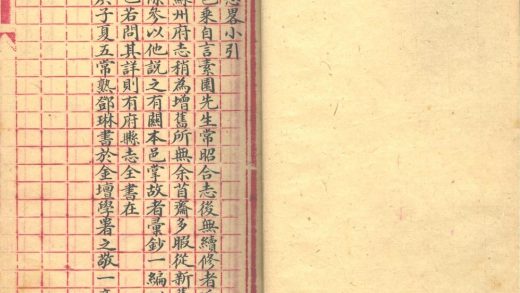 志畧小引
邑乘自言素園先生常昭合志後無續修者
蘇州府志稍為增舊所無余首齋多暇從新舊
除參以他說之有關本邑掌故者彙鈔一編
已若問其詳則有府縣志全書在
子夏五常熟鄧琳書於金壇學署之敬一